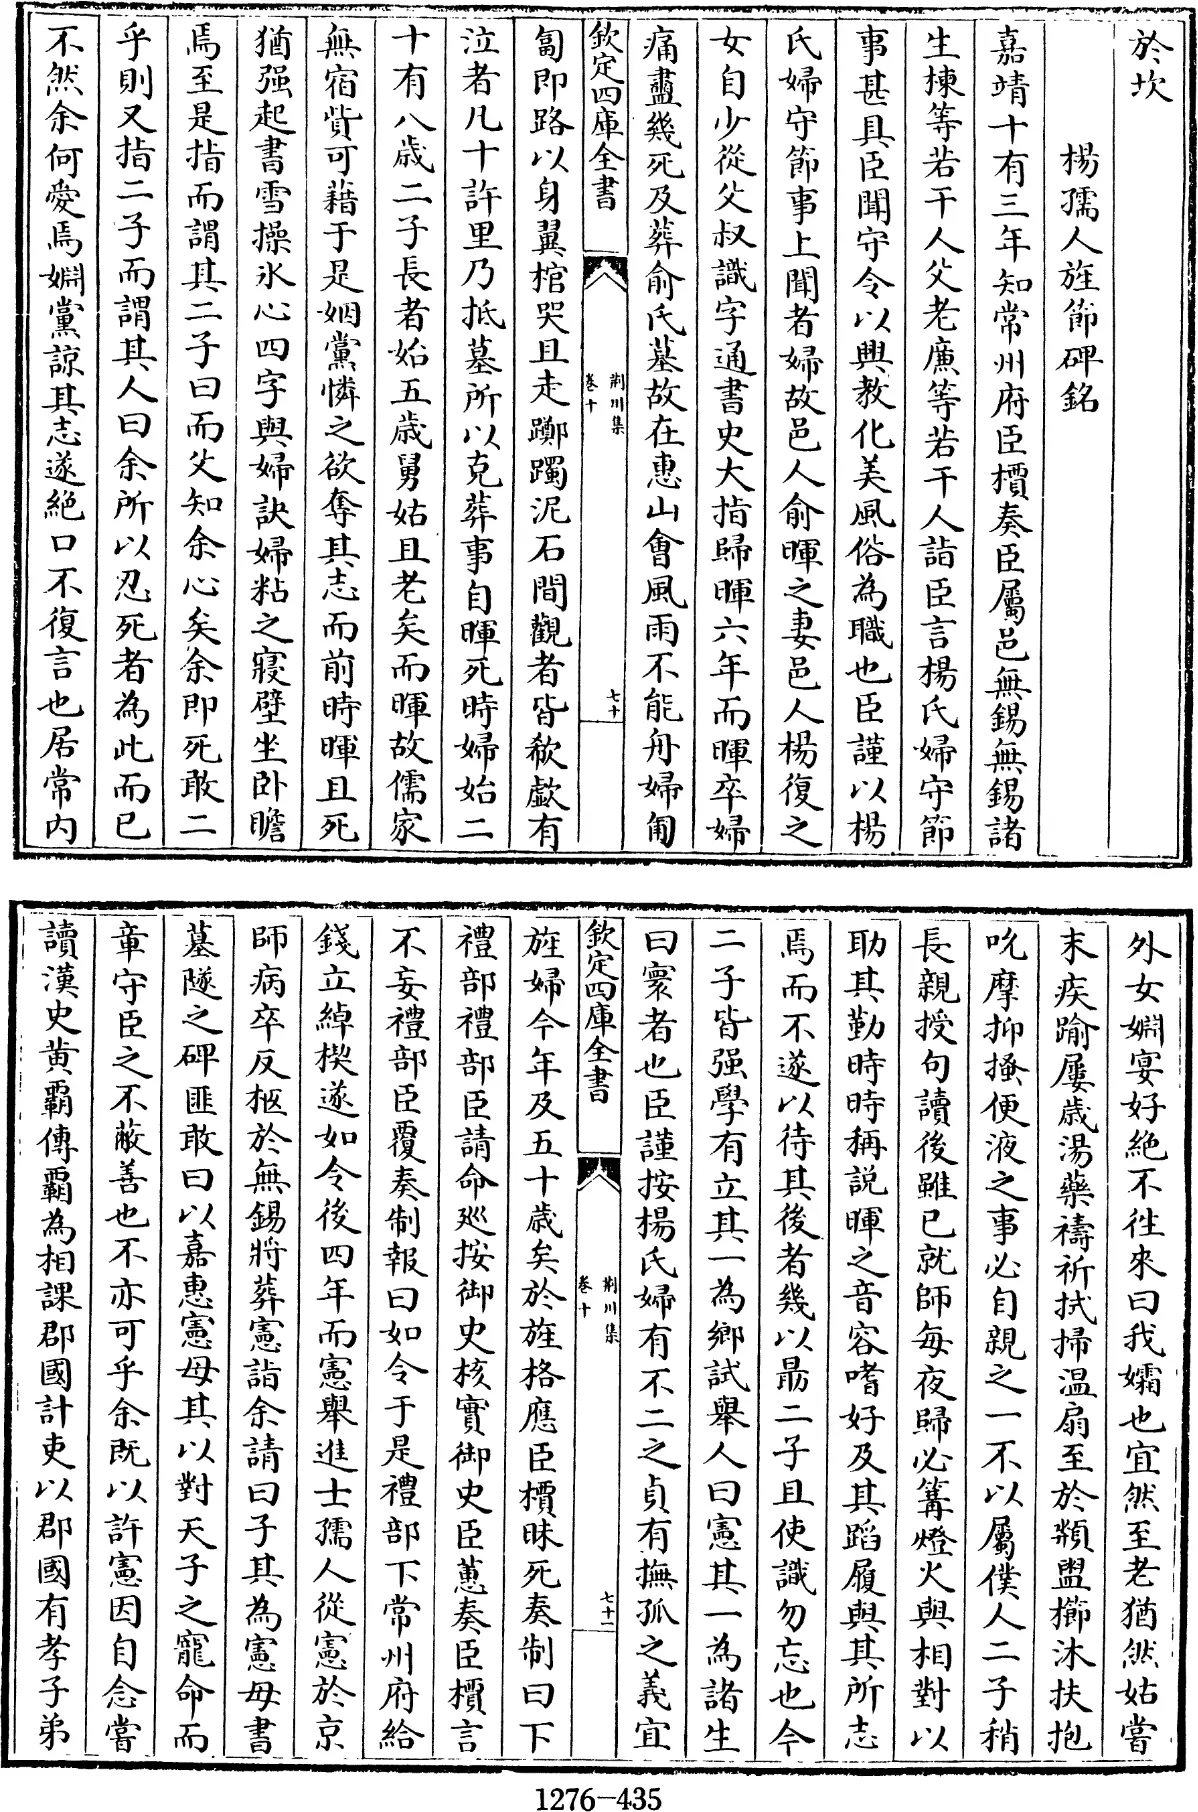 於坎
楊孺人旌節碑銘
嘉靖十有三年知常州府臣檟奏臣屬邑無錫無錫諸
生棟等若干人父老廉等若干人詣臣言楊氏婦守節
事甚具臣聞守令以興教化美風俗為職也臣謹以楊
氏婦守節事上聞者婦故邑人俞暉之妻邑人楊復之
女自少從父叔識字通書史大指歸暉六年而暉卒婦
痛盡幾死及葬俞氏墓故在惠山會風雨不能舟婦匍
欽定四庫全書
荆川集
卷十
七十
匐即路以身翼棺哭且走躑躅泥石間觀者皆欷歔有
泣者凡十許里乃抵墓所以克葬事自暉死時婦始二
十有八歲二子長者始五歲舅姑且老矣而暉故儒家
無宿貲可藉于是姻黨憐之欲奪其志而前時暉且死
猶强起書雪操氷心四字與婦訣婦粘之寢壁坐卧瞻
焉至是指而謂其二子曰而父知余心矣余即死敢二
乎則又指二子而謂其人曰余所以忍死者為此而已
不然余何愛焉婣黨諒其志遂絕口不復言也居常内
外女婣宴好絕不徃來曰我孀也宜然至老猶然姑嘗
末疾踰屢歲湯藥禱祈拭掃温扇至於頮盥櫛沐扶抱
吮摩抑搔便液之事必自親之一不以屬僕人二子稍
長親授句讀後雖已就師每夜歸必篝燈火與相對以
助其勤時時稱説暉之音容嗜好及其蹈履與其所志
焉而不遂以待其後者幾以勗二子且使識勿忘也今
二子皆强學有立其一為鄉試舉人曰憲其一為諸生
曰寰者也臣謹按楊氏婦有不二之貞有撫孤之義宜
欽定四庫全書
荆川集
卷十
七十一
旌婦今年及五十歲矣於旌格應臣檟昧死奏制曰下
禮部禮部臣請命廵按御史核實御史臣蕙奏臣檟言
不妄禮部臣覆奏制報曰如令于是禮部下常州府給
錢立綽楔遂如令後四年而憲舉進士孺人從憲於京
師病卒反柩於無錫將葬憲詣余請曰子其為憲母書
墓隧之碑匪敢曰以嘉惠憲母其以對天子之寵命而
章守臣之不蔽善也不亦可乎余既以許憲因自念嘗
讀漢史黄霸傳霸為相課郡國計吏以郡國有孝子弟
1276-435